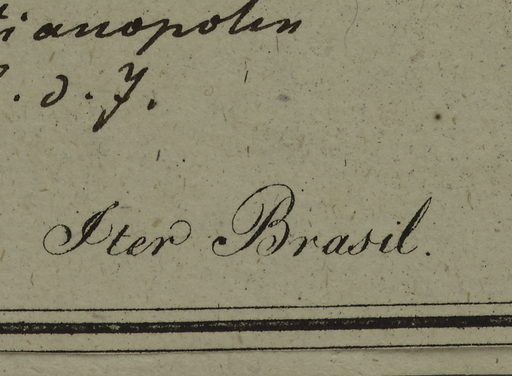 tianopolin
. d. J.
Iter Brasil.